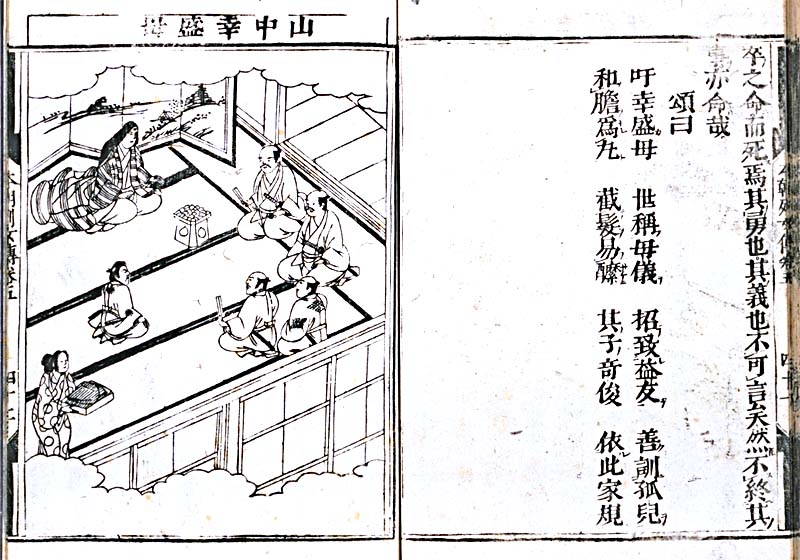 之命而死焉其勇也其義也不可言矣然不終其
亦命哉
頌曰
吁幸盛母 世稱母儀 招致益友 善訓孤兒
和膽爲丸 截髮易 其子奇俊 依此家規
山中幸盛母
本朝列女傳卷五
四十二